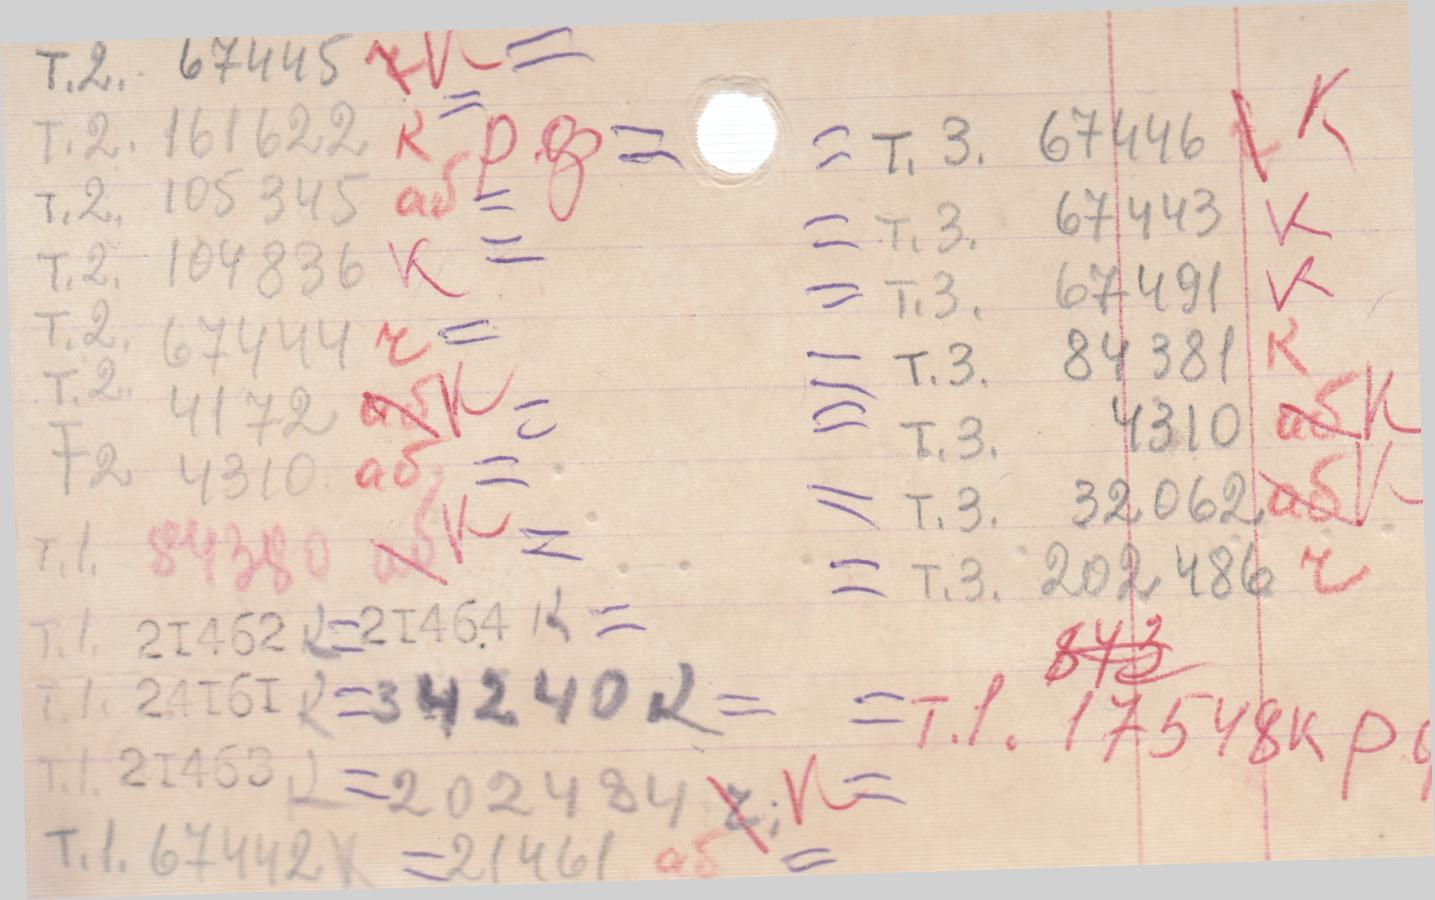 Т.2. 67445 ч К =
Т.2. 161622 К = р.ф =
Т.2. 105345 аб =
Т.2. 104836 К =
Т.2. 67444 ч =
Т.2. 4172 аб К =
Т2 4310 аб =
Т.1. 84380 аб К =
Т.1. 21462 К = 21464 К =
Т.1. 24161 К = 34240 К =
Т.1. 21463 К = 202484 ч; К =
Т.1. 67442 К = 21461 аб =
= Т.3. 67446 К
= Т.3. 67443 К
= Т.3. 67491 К
= Т.3. 84381 К
= Т.3. 4310 аб К
= Т.3. 32062 аб К
= Т.3. 202486 ч
843
= Т.1. 17548 К р.